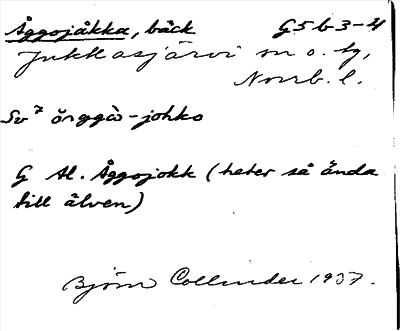 Åggojåkka, bäck G5b3-4
Jukkasjärvi sn o. tg,
Norrb. l.
Sv⁷ ŏrggὼ-johko
G Al. Åggojokk (heter så ända
till älven)
Björn Collinder 1937.